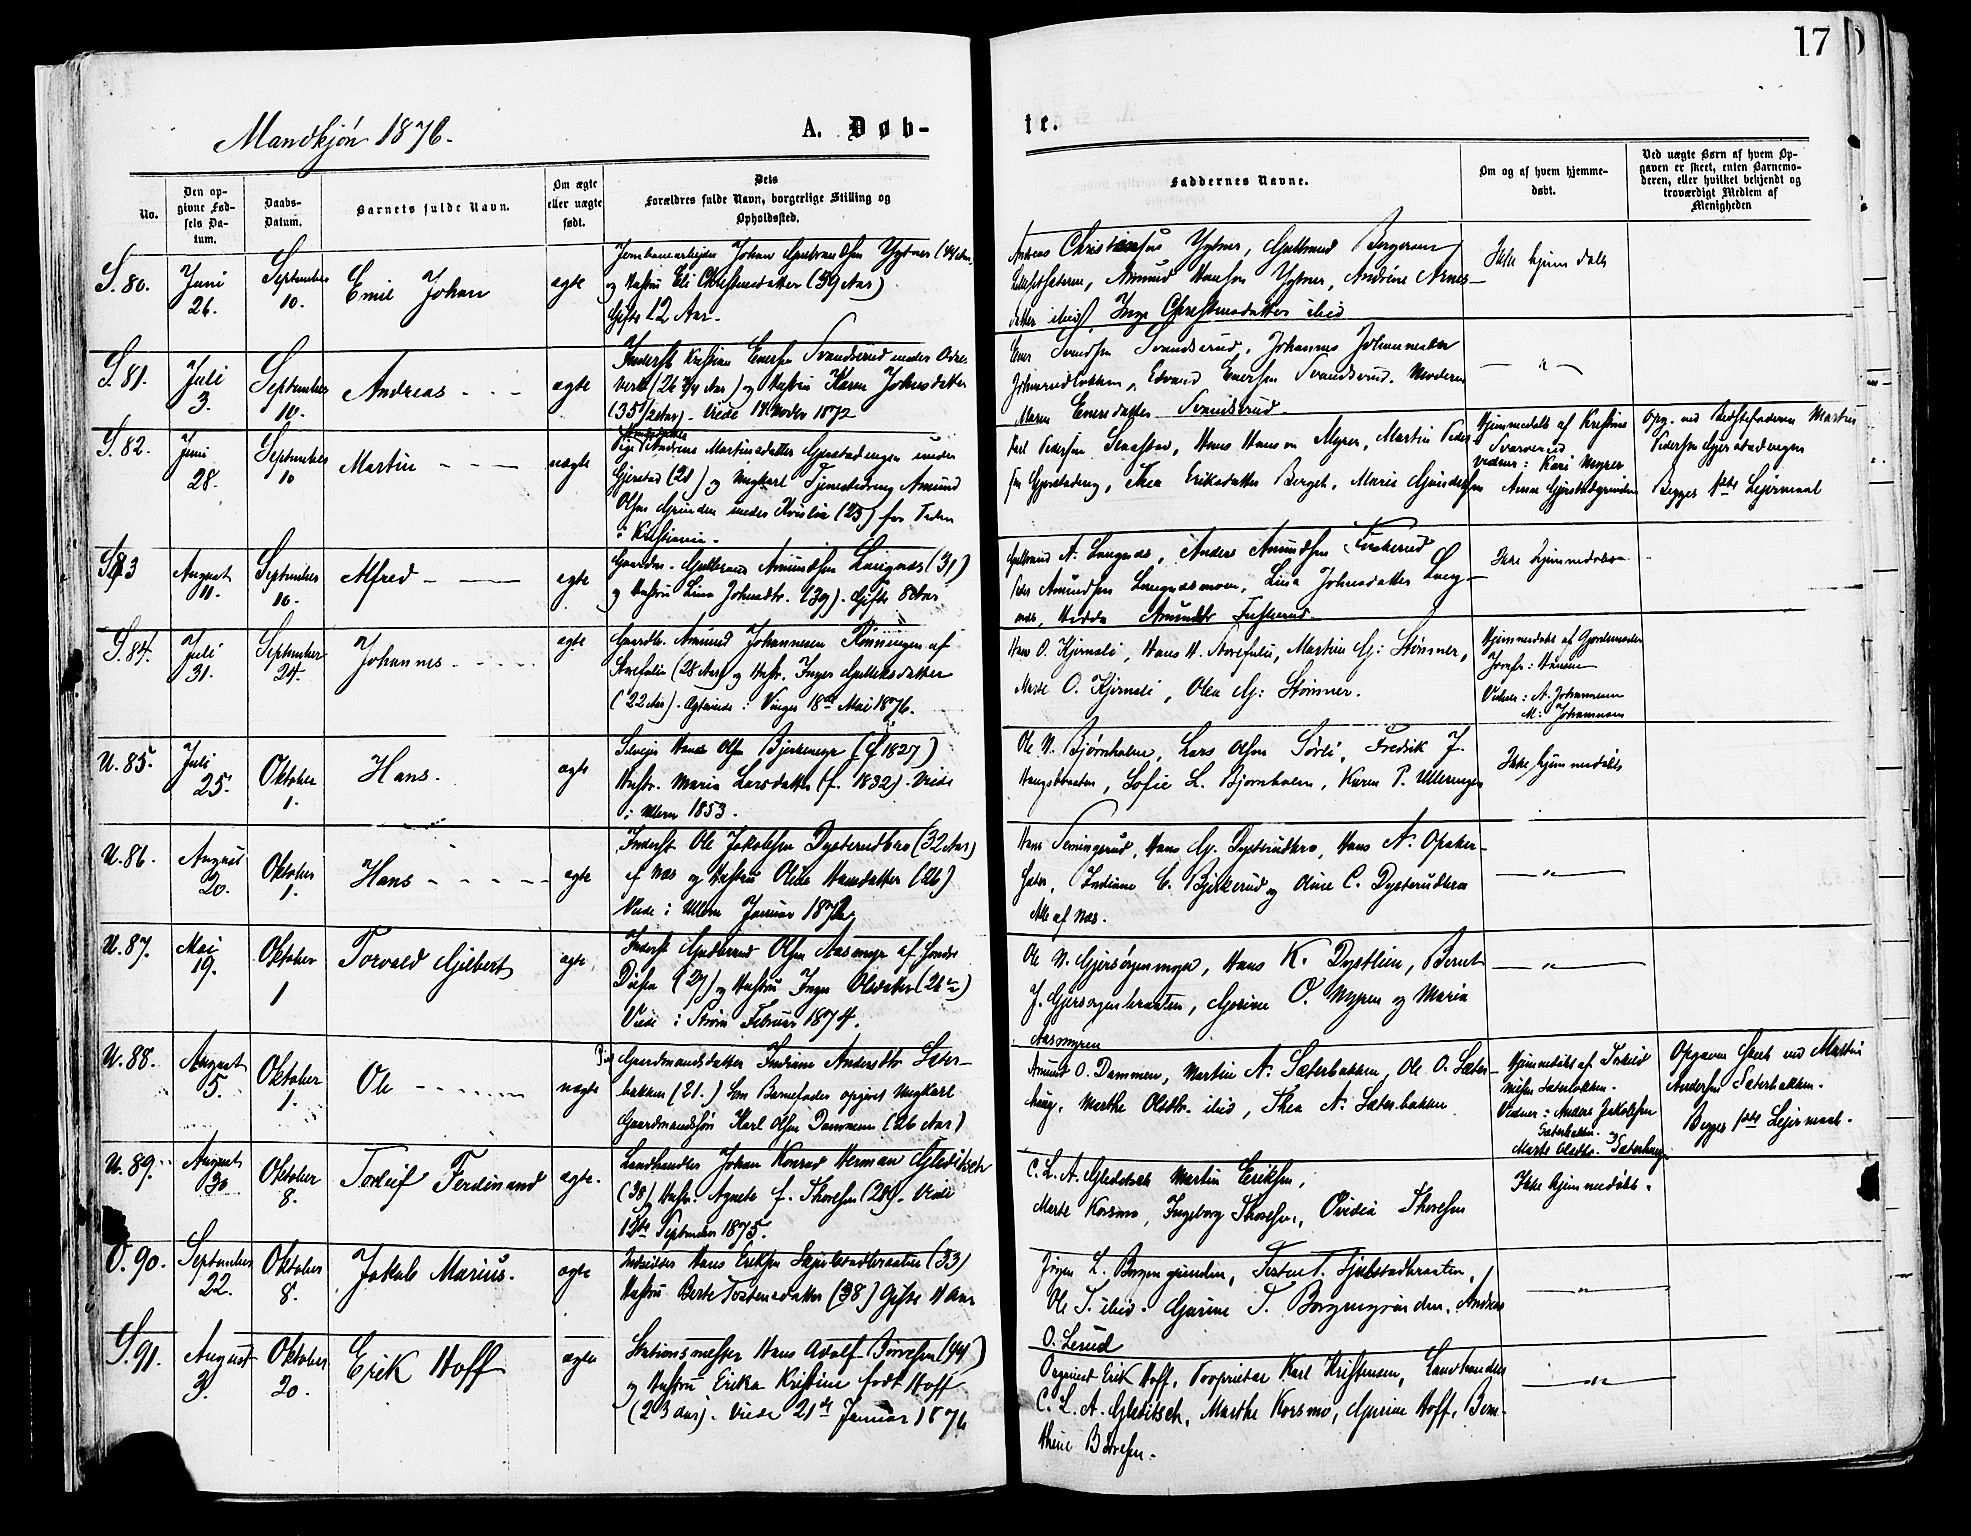 17
Mandkjøn 1876.
A. Døb-
te.
No.
Den op-
givne Fød-
sels Da-
tum.
Daabs-
Datum.
Barnets fulde Navn.
Om ægte
eller uægte
født.
Dets
Forældres fulde Navn, borgerlige Stilling og
Opholdssted.
Faddernes Navne.
Om og af hvem hjemme-
døbt.
Ved uægte Børn af hvem Op-
gaven er skeet, enten Barnemo-
deren, eller hvilket bekjendt og
troværdigt Medlem af
Menigheden
S. 80.
Juni
26.
September
10.
Emil Johan
ægte
Johan
og Hustru Eli Christensdatter (39 Aar)
Gifte 12 Aar.
Andreas
Amund Hansen Andrine Arnes-
datter ibid, Inge Christensdatter ibid
Ikke hjemdøbt
S. 81.
Juli
3.
September
10.
Andreas
ægte
Inderst Kristian Enersen Svandserud under
(26 3/4 Aar) og Hustru Karen Johnsdatter
(35 1/2 Aar). Viede 1872
Ener Svendsen Svandserud, Johannes Johannesen
Edvard Enersen Svandserud. Moderen
Maren Enersdatter Svandserud
— " —
S. 82.
Juni
28.
September
10
Martin
uægte
Pige Andrea Martinsdatter Gjerstadengen under
Gjerstad (20) og Ungkarl Tjenestedreng Amund
Olsen Grinden under (25) for Tiden
i Kristiania.
Karl Pedersen Hans Hansen Myrer, Martin Peder-
sen Thea Eriksdatter Berget, Marie
Hjemmedøbt af Kristine
Vidner: Kari Myrer
Anne
Opg. ved Bedstefaderen Martin
Pedersen
Begges 1ste Leiermaal
S. 83
August
11.
September
10.
Alfred
ægte
Gulbrand Amundsen Langnæs (31)
og Hustru Lina Johnsdtr. (39). Gifte 8 Aar
Gulbrand A. Langnæs, Anders Amundsen Fuskerud
Peder Amundsen Langnæsmoen, Lina Johnsdatter Lang-
næs, Amundsdtr
Ikke hjemmedøbt
S. 84.
Juli
31.
September
24.
Johannes
ægte
Gaardbr. Amund Johannesen Rønningen af
(28 Aar) og Hustr. Inger
(22 Aar). Ægteviede i Vinger 18de Mai 1876.
Hans O. Kjernsli, Hans H. Martin G. Stømner,
O. Kjernsli, Olea G: Stømner.
Hjemmedøbt af Gjordemoder
Jomfr: Hansen
Vidner: A. Johannesen
M: Johannesen
U. 85.
Juli
25.
Oktober
1.
Hans.
ægte
Selveier Hans Olsen Bjerkemyr (f 1827)
Hustr. Maria Larsdatter (f. 1832). Viede
i Ullern 1853.
Ole N. Bjørnholen, Lars Olsen Sørli, Fredrik J.
Haugsbraaten, Sofie L. Bjørnholen, Karen P. Ullerengen
Ikke hjemmedøbt
U. 86.
August
20.
Oktober
1.
Hans
ægte
Inderst Ole Jakobsen Dysterudbro (32 Aar)
af Næs og Hustru Oline Hansdatter (26)
Viede i Ullern Januar
Hans Hans G. Dysterudbro, Hans A.
Indiane E. Bjerkerud og Oline C. Dysterudbro
Alle af Næs.
— " —
U. 87.
Mai
19.
Oktober
1
Torvald Gilbert
ægte
Inderst Gudbrand Olsen Aasmyr af Søndre
(27) og Hustru Inger Olsdatter (26)
Viede i Strøm Februar 1874.
Ole N. Hans K. Dystlien, Bernt
J. O. Myren og Maria
Aasmyren
— " —
U. 88.
August
5.
Oktober
1.
Ole
uægte
Pige Gaardmandsdatter Indiane Andersdtr Sæter-
bakken (21.) Som Barnefader opgivet Ungkarl
Gaardmandssøn Karl Olsen Dammen (26 Aar)
Amund O. Dammen, Martin A. Sæterbakken, Ole O. Sæter-
haug, Marthe Olsdtr. ibid, Thea A. Sæterbakken
Hjemmedøbt af
Vidner: Anders Jakobsen
Sæterbakken.
Marte Olsdtr. Sæterhaug
Opgaven skeet ved Martin
Andersen Sæterbakken.
Begges 1ste Leiermaal.
U. 89.
August
30
Oktober
8.
Ferdinand
ægte.
Landhandler Johan Konrad Herman Gleditsch
(38) Hustr. Agnete f. Thoresen (28). Viede
12te September 1875.
C. L. A. Gleditsch Martin Eriksen,
Marte Korsmo, Ingeborg Thoresen, Ovidia Thoresen
Ikke hjemmedøbt.
O. 90.
September
22.
Oktober
8.
Jakob Marius.
ægte
Indsidder Hans Eriksen Skjulstadbraaten (33)
Hustru Berte Tostensdatter (38) Gifte
Jørgen L. Borgengrinden,
Ole T. ibid. Gurine T. Borgengrinden, Andreas
O. Lerud
— " —
S. 91.
August
3.
Oktober
20.
Erik Hoff
ægte
Stationsmester Hans Adolf Børresen (44)
og Hustru Erika Kristine født Hoff
(23 Aar). Viede 21de Januar 1876
Organist Erik Hoff, Proprietær Karl Kristensen, Landhandler
C. L. A. Gleditsch, Marthe Korsmo, Gurine Hoff,
Børresen.
— " —